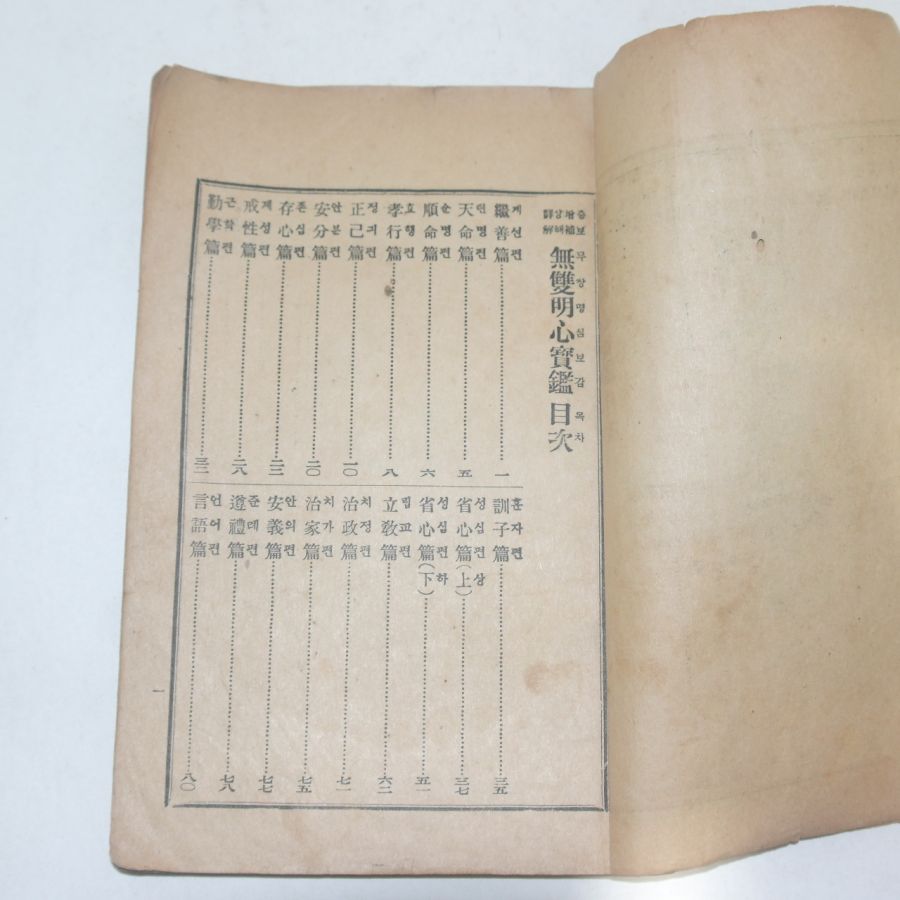 증보 상해
增補 詳解
무쌍명심보감 목차
無雙明心寶鑑 目次
계션편
繼善篇 一
텬명편
天命篇 五
순명편
順命篇 六
효행편
孝行篇 八
정긔편
正己篇 一〇
안분편
安分篇 二〇
존심편
存心篇
계성편
戒性篇 二八
근학편
勤學篇
훈자편
訓子篇 三五
성심편 상
省心篇(上) 三七
성심편 하
省心篇(下) 五一
립교편
立敎篇 六二
치정편
治政篇 七一
치가편
治家篇 七五
안의편
安義篇 七七
준례편
遵禮篇 七八
언어편
言語篇 八〇
一